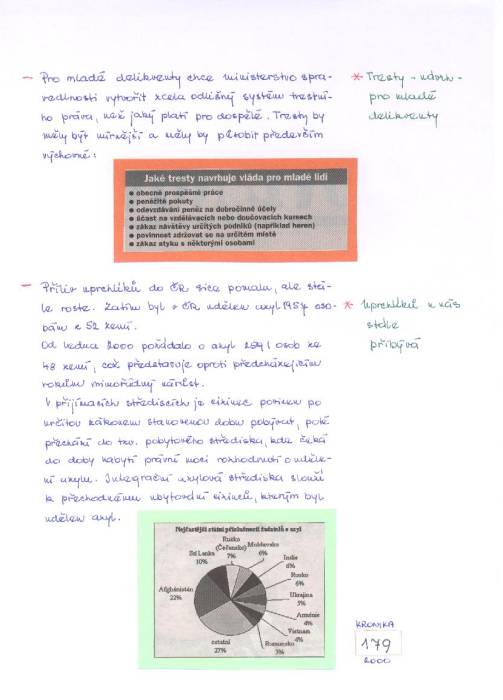 - Pro mladé delikventy chce ministerstvo spra-
vedlnosti vytvořit zcela odlišný systém trestní-
ho práva, než jaký platí pro dospělé. Tresty by
měly být mírnější a měly by působit především
výchovně:
* Tresty - návrh -
pro mladé
delikventy
Jaké tresty navrhuje vláda pro mladé lidi
● obecně prospěšné práce
● peněžité pokuty
● odevzdávání peněz na dobročinné účely
● účast na vzdělávacích nebo doučovacích kursech
● zákaz návštěvy určitých podniků (například heren)
● povinnost zdržovat se na určitém místě
● zákaz styku s některými osobami
- Příliv uprchlíků do ČR sice pomalu, ale stá-
le roste. Zatím byl v ČR udělen azyl 1957 oso-
bám z 52 zemí.
Od ledna 2000 požádalo o azyl 2591 osob ze
48 zemí, což představuje oproti předcházejícím
rokům mimořádný nárůst.
V přijímacích střediscích je cizinec povinen po
určitou zákonem stanovenou dobu pobývat, poté
přechází do tzv. pobytového střediska, kde čeká
do doby nabytí právní moci rozhodnutí o uděle-
ní azylu. Integrační azylová střediska slouží
k přechodnému ubytování cizinců, kterým byl
udělen azyl.
* Uprchlíků u nás
stále
přibývá
Nejčastější státní příslušnosti žadatelů o azyl
Rusko
(Čečensko)
7%
Moldavsko
6%
Srí Lanka
10%
Indie
6%
Rusko
6%
Afghánistán
22%
Ukrajina
5%
Arménie
4%
Vietnam
4%
Rumunsko
3%
ostatní
27%
KRONIKA
179
2000